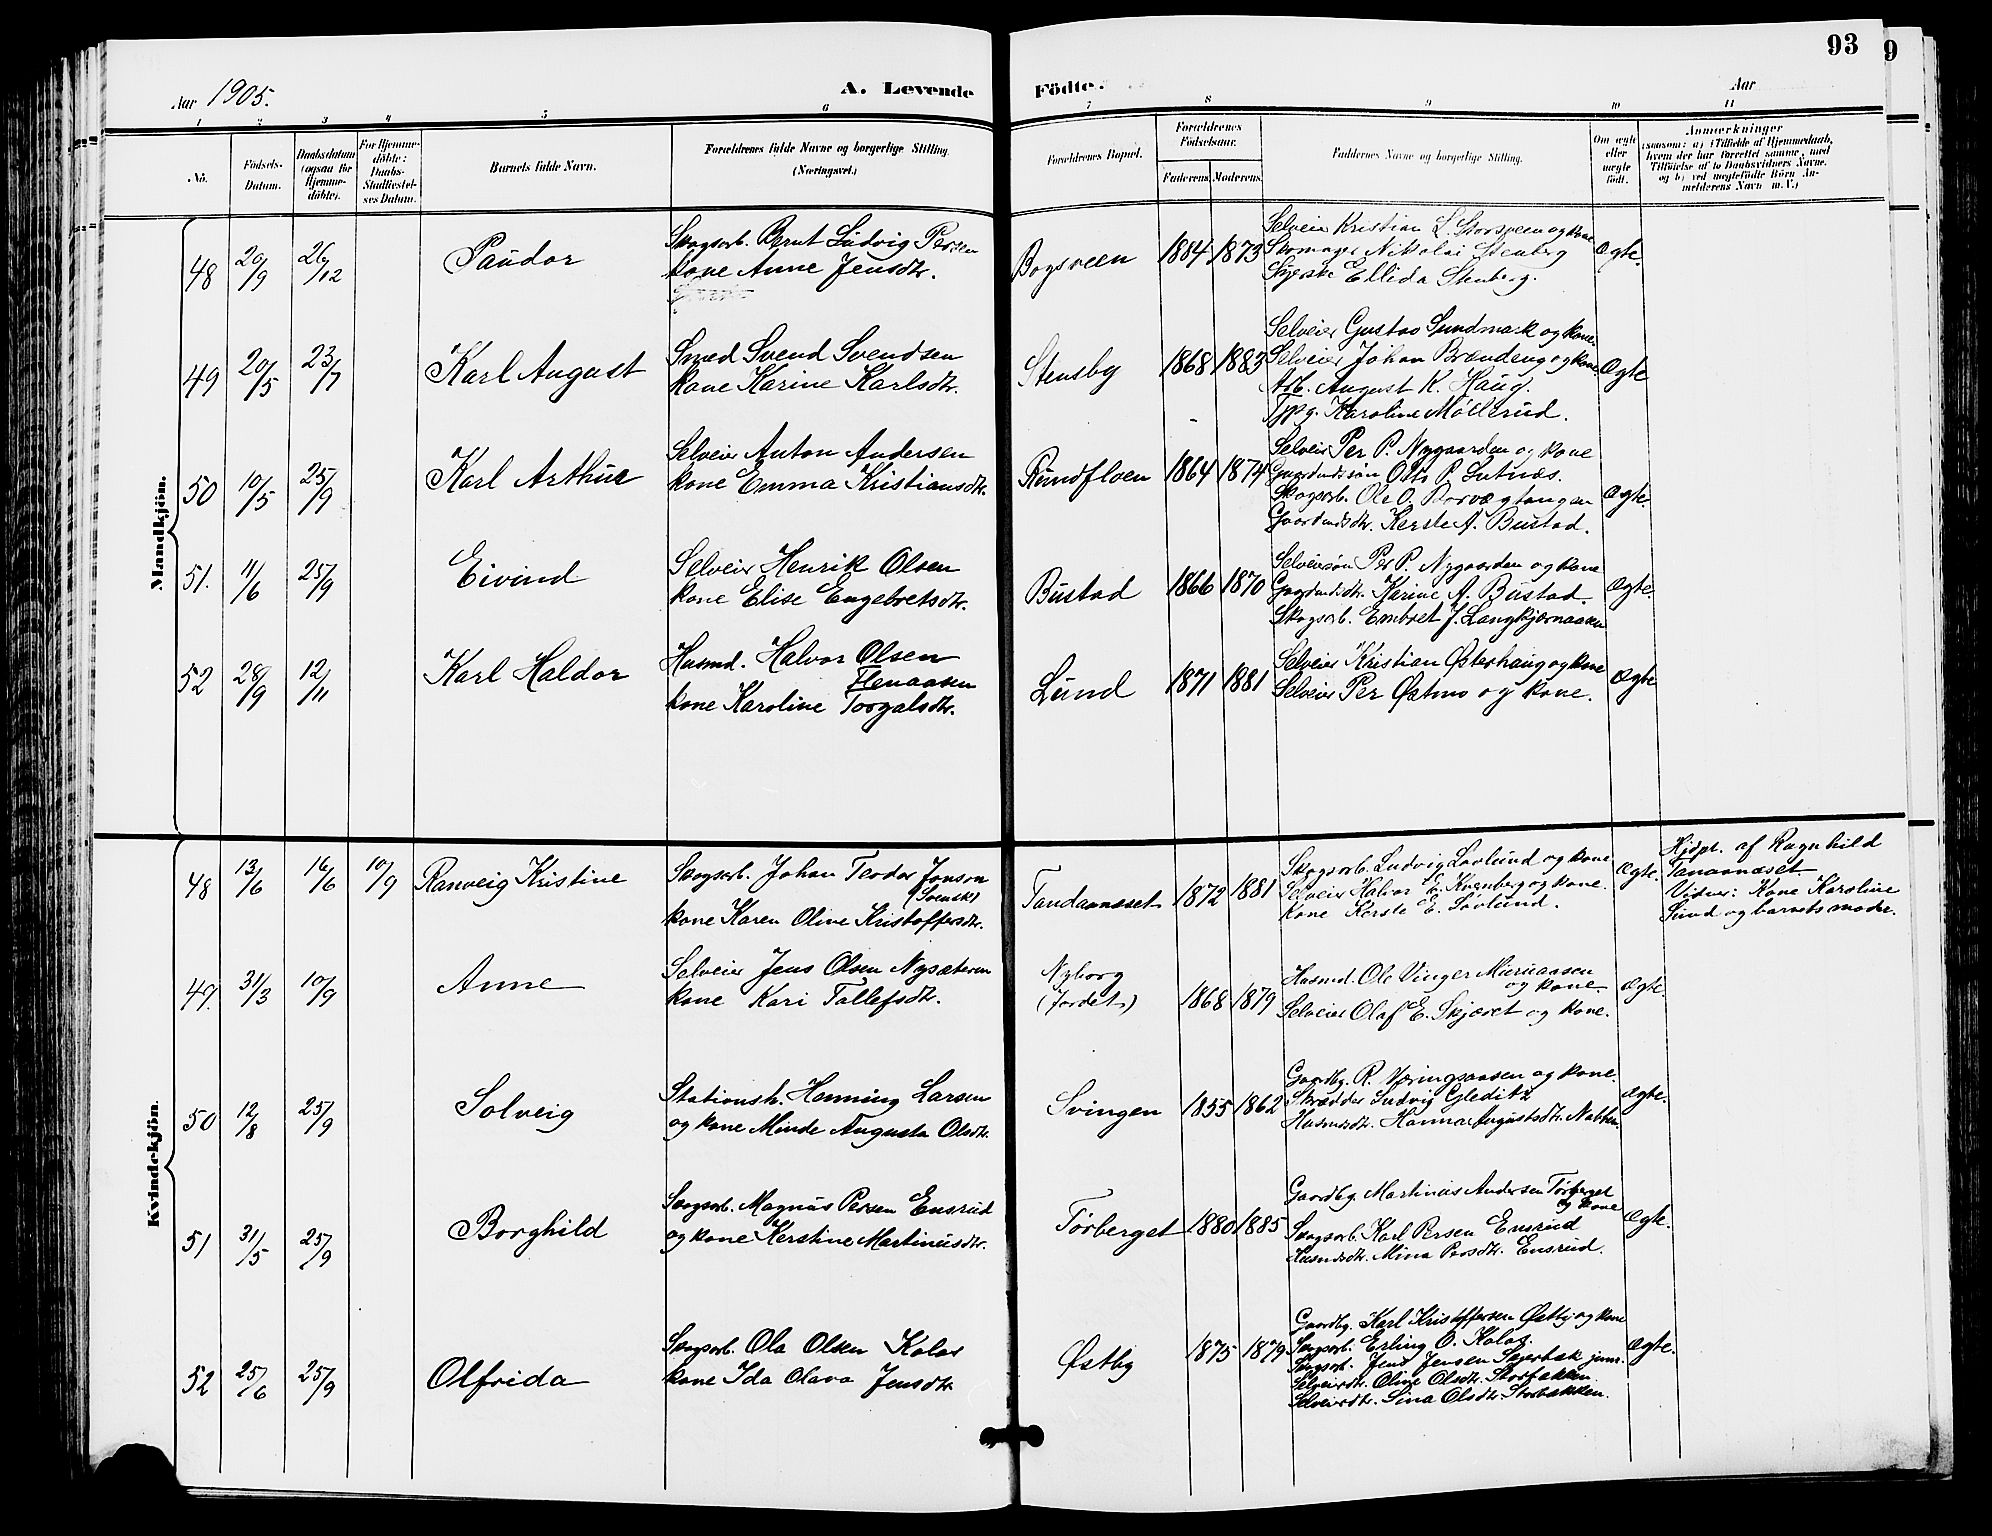 93
9
Aar 1905.
A. Levende
Födte.
Aar
1 2 3 4 5 6 7 8 9 10 11
No.
Födsels-
Datum.
Daabsdatum
(ogsaa for
Hjemme-
döbte).
For Hjemme-
döbte:
Daabs-
Stadfæstel-
ses Datum.
Barnets fulde Navn.
Forældrenes fulde Navne og borgerlige Stilling.
(Næringsvei.)
Forældrenes Bopæl.
Forældrenes
Födselsaar.
Faderens. Moderens.
Faddernes Navne og borgerlige Stilling.
Om ægte
eller
uægte
født.
Anmærkninger
(saasom: a) i Tilfælde af Hjemmedaab,
hvem der har forrettet samme, med
Tilføielse af to Daabsvidners Navne.
og b) ved uægtefödte Börn An-
melderens Navn m. V.)
Mandkjön.
48 20/9 26/12 Paudor
Skogsarb. Bernt Ludvig Persen
kone Anne Jensdtr.
Bogsveen 1884 1873
Selveier Kristian L. Storsveen og kone
Skomager Nikolai Stenberg
Syerske Ellida Stenberg.
Ægte.
49 20/5 23/7 Karl August
Smed Svend Svendsen
kone Karine Karlsdtr.
Stensby 1868 1883
Selveier Gustav Sundmark og kone.
Selveier Johan Brændeng og kone
Arb. August K. Haug.
Tjpg. Karoline Møllerud.
Ægte
50 10/5 25/9 Karl Arthur
Selveier Anton Andersen
kone Emma Kristiansdtr.
Rundfloen 1864 1874
Selveier Per P. Nygaarden og kone
Gaardmdssøn Otto P. Lutnæs.
Skogsarb. Ole O. Borvægtangen
Gaardmdsdtr. Kerste A. Bustad.
Ægte.
51. 11/6 25/9 Eivind
Selveier Henrik Olsen
kone Elise Engebretsdtr.
Bustad 1866 1870
Selveiersøn Per P. Nygaarden og kone
Gaardmdsdtr. Karine A. Bustad.
Skogsarb. Embret J. Langkjernaasen
Ægte.
52 28/9 12/11 Karl Haldor
Husmd. Halvor Olsen
Flenaasen
kone Karoline Torgalsdtr.
Lund 1871 1881
Selveier Kristian Østerhaug og kone
Selveier Per Østmo og kone.
Ægte
Kvindekjön.
48 13/6 16/6 10/9 Ranveig Kristine
Skogsarb. Johan Teodor Jonson
(Svensk)
kone Karen Olive Kristoffersdtr.
Tandaanæset 1872 1881
Skogsarb. Ludvig Lövlund og kone
Selveier Halvor E. Kvenberg og kone.
Kone Kerste E. Lövlund.
Ægte.
Hjdpt. af Ragnhild
Tanaanæset.
Vidner: Kone Karoline
Lund og barnets moder.
49. 31/3 10/9 Anne
Selveier Jens Olsen Nysæteren
kone Kari Tollefsdtr.
Nyborg
(Jordet) 1868 1879
Husmd. Ole Vinger Mieruaasen
og kone.
Selveier Olaf E. Skjæret og kone.
Ægte.
50 12/8 25/9 Solveig
Stationsh. Henning Larsen
og kone Minde Augusta Olsdtr.
Svingen 1855 1862
Gaardbg. R. Væringsaasen og kone.
Skrædder Ludvig Gleditz
Husmdsdtr. Hanna Augustsdtr. Nabben.
Ægte.
51 31/5 25/9 Borghild
Skogsarb. Magnus Persen Ensrud
og kone Kerstine Martinusdtr.
Tørberget 1880 1885
Gaardbg. Martinus Andersen Tørberget
og kone
Skogsarb. Karl Persen Ensrud
Husmdsdtr. Mina Persdtr. Ensrud.
Ægte.
52 25/6 25/9 Olfrida
Skogsarb. Ola Olsen Kolos
kone Ida Olava Jensdtr
Østby 1875 1879
Gaardbg. Karl Kristoffersen Østby og kone
Skogsarb. Erling O. Kolos.
Skogsarb. Jens Jensen Sæterbak jun.
Selveierdtr. Oline Olsdtr. Storbakken.
Selveierdtr. Lina Olsdtr. Storbakken.
Ægte.